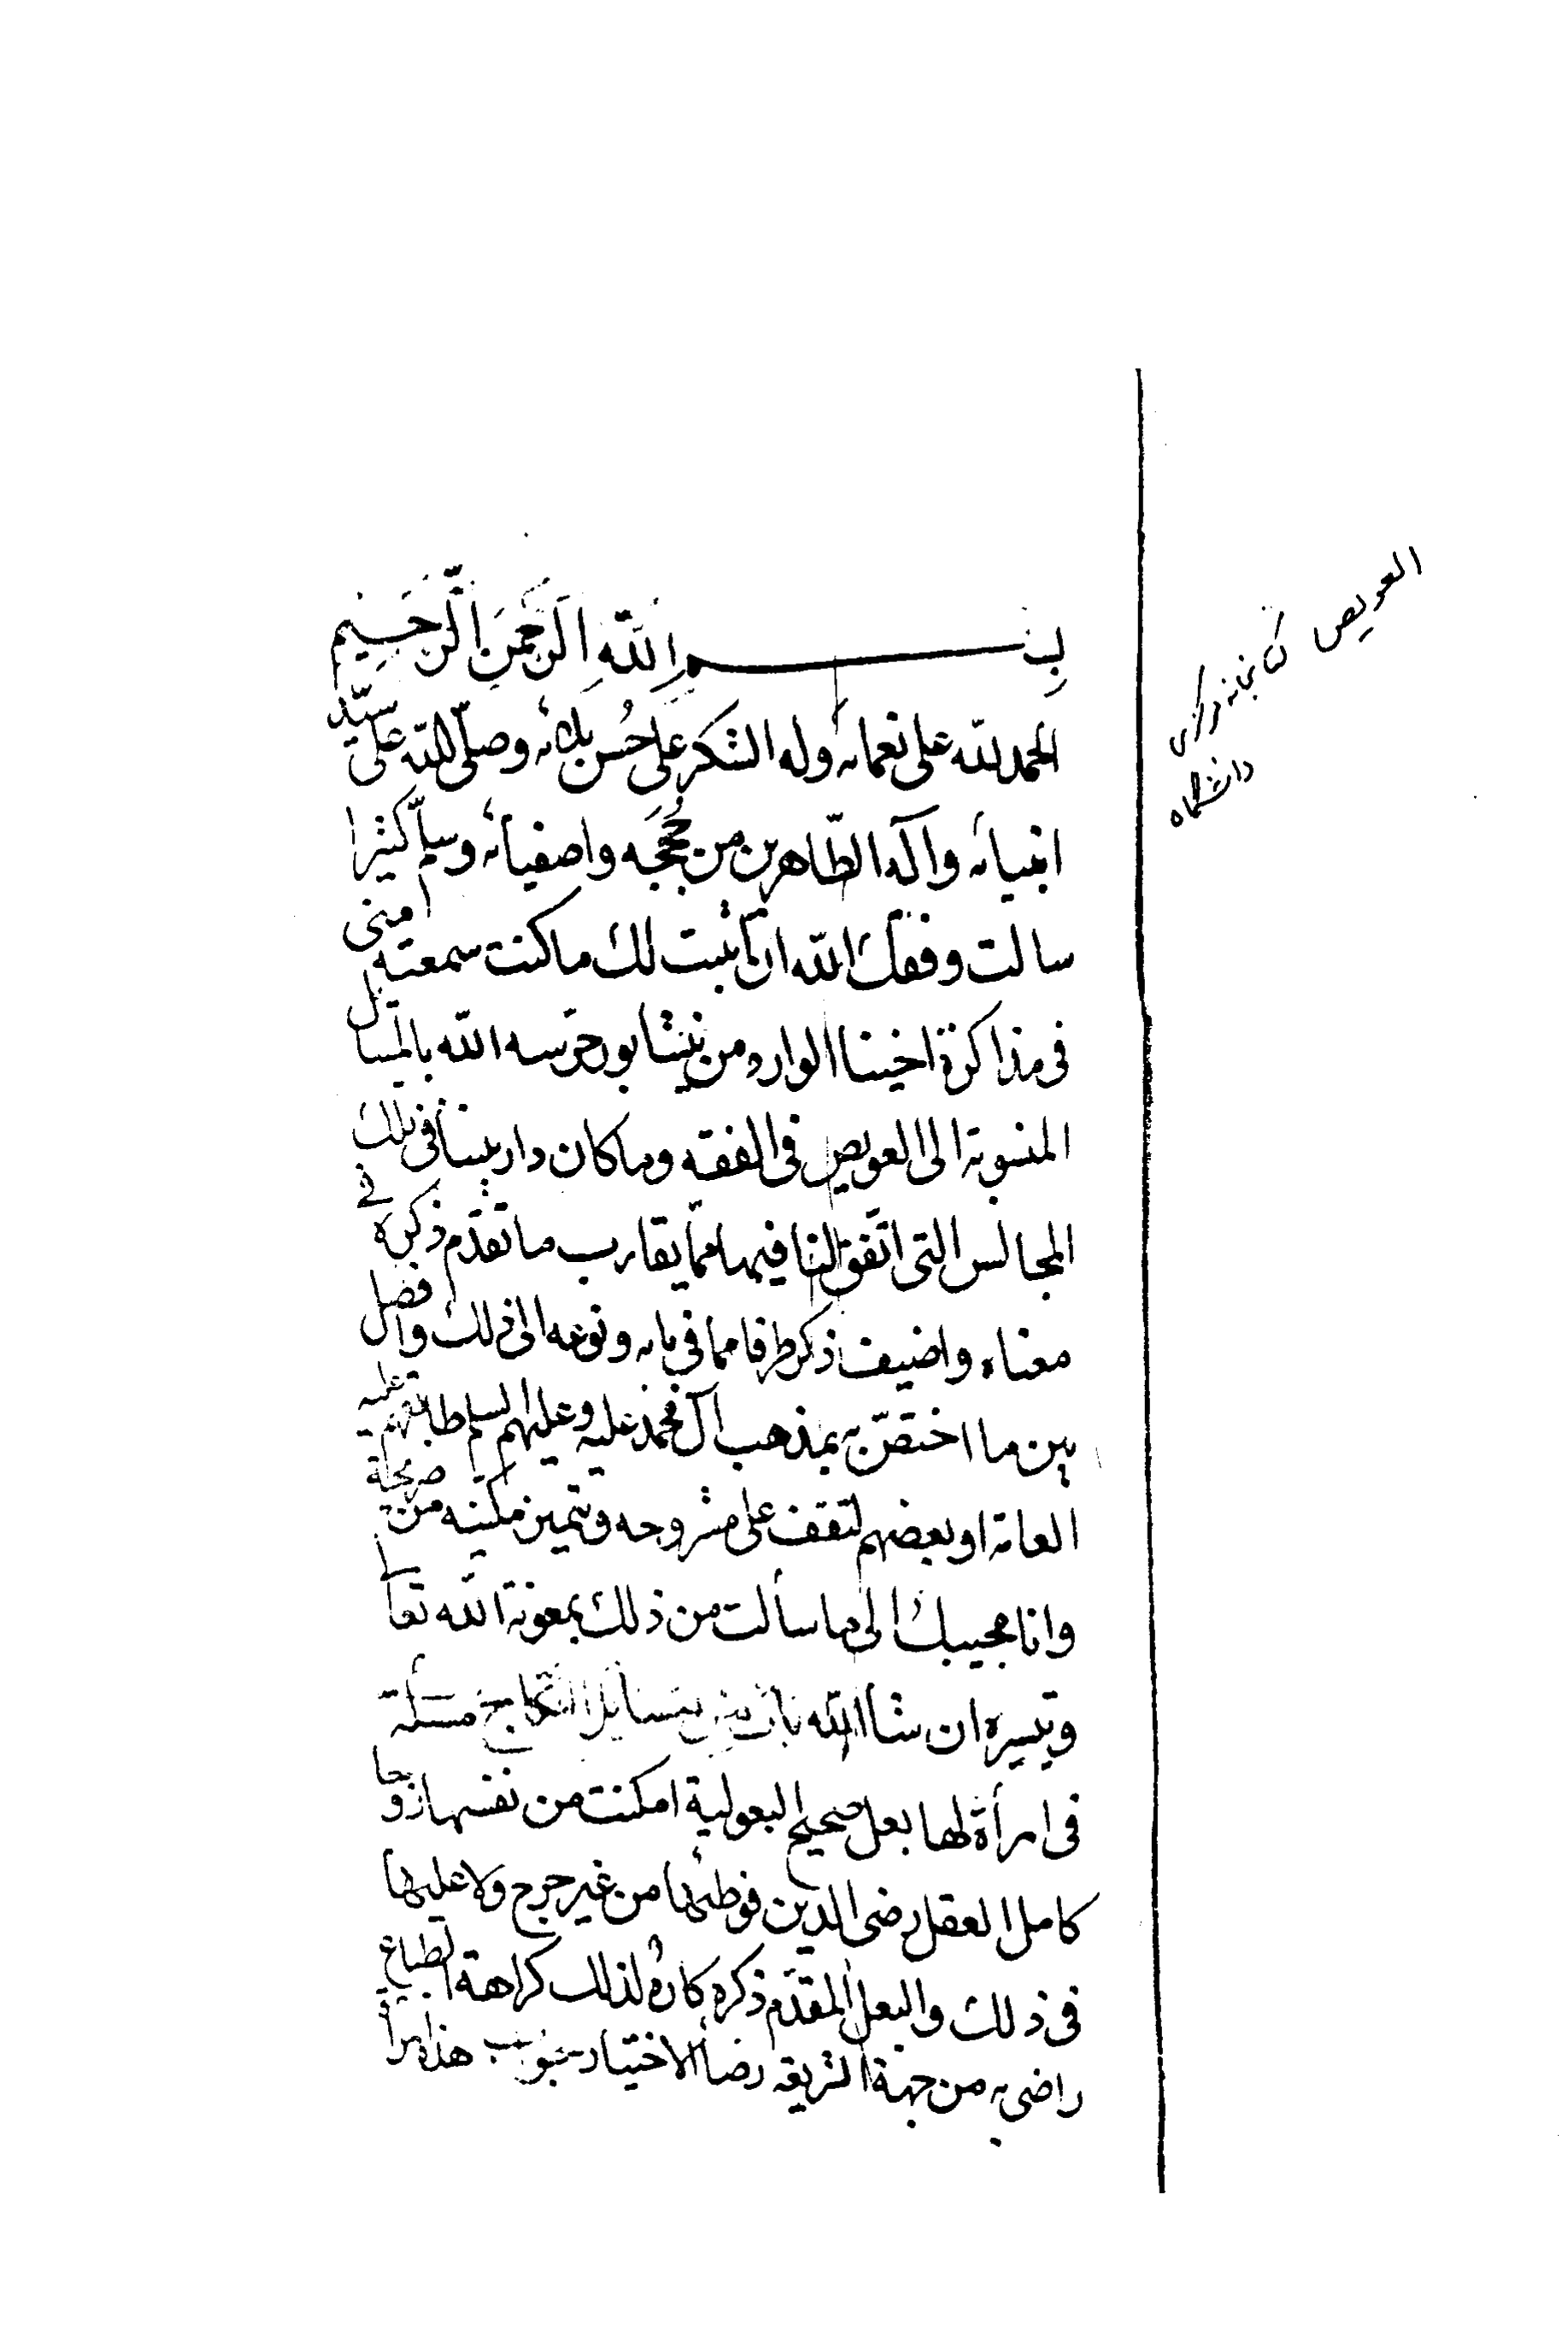 بسم الله الرحمن الرحيم
الحمد لله على نعمائه وله الشكر على حُسن بلائه وصلّى الله على سيّد
انبيائه وآله الطّاهرين من حُججه واصفيائه وسلّم كثيرا
سالت وفقك الله ان أثبت لك ما كنت سمعته منى
فى مذاكرة اخينا الوارد من نيشابور حرّسه الله بالمسائل
المنسوبة الى العويص فى الفقه وما كان دار بيننا فى تلك
المجالس التى اتّفق لنا فيها ممّا يقارب ما تقدّم ذكره فى
معناه واضيف ذكر طرفا مما فى بابه ونوعه الى ذلك وافصل
بين ما اختصّ به بمذهب آل محمّد عليه وعليهم السلم طابقتهم عليه
العامة او بعضهم لتقف على مشروحه وتميز مكنيه من صريحة
وانا مجيبك الى ما سألت من ذلك بمعونة الله تعالى
وتيسيره ان شاء الله مسايل النكاح مسئلة
فى امرأة لها بعل صحيح البعولية امكنت من نفسها زوجا
كامل العقل رضى الدين فوطئها من غير حرج ولا عليها
فى ذلك والبعل المقدّم ذكره كارهٌ لذلك كراهة الطباع
راضى به من جهة الشريعة رضا الاختيار جواب هذه امرأ
العويص كتابخانه مركزى
دانشگاه